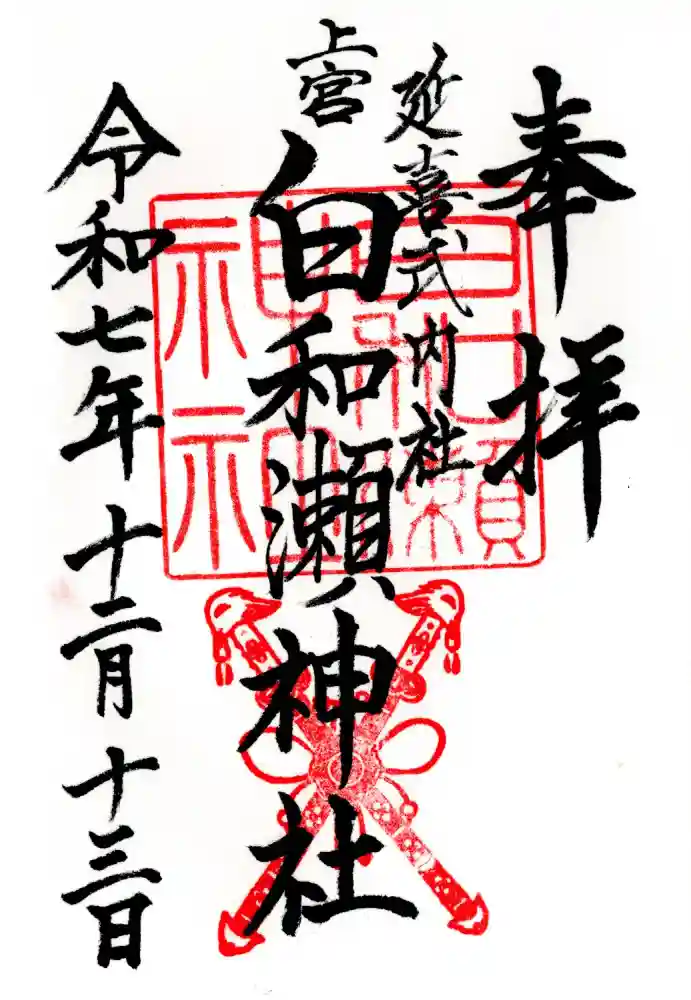 奉拝
延喜式内社
上宮
白和瀬神社
令和七年十二月十三日